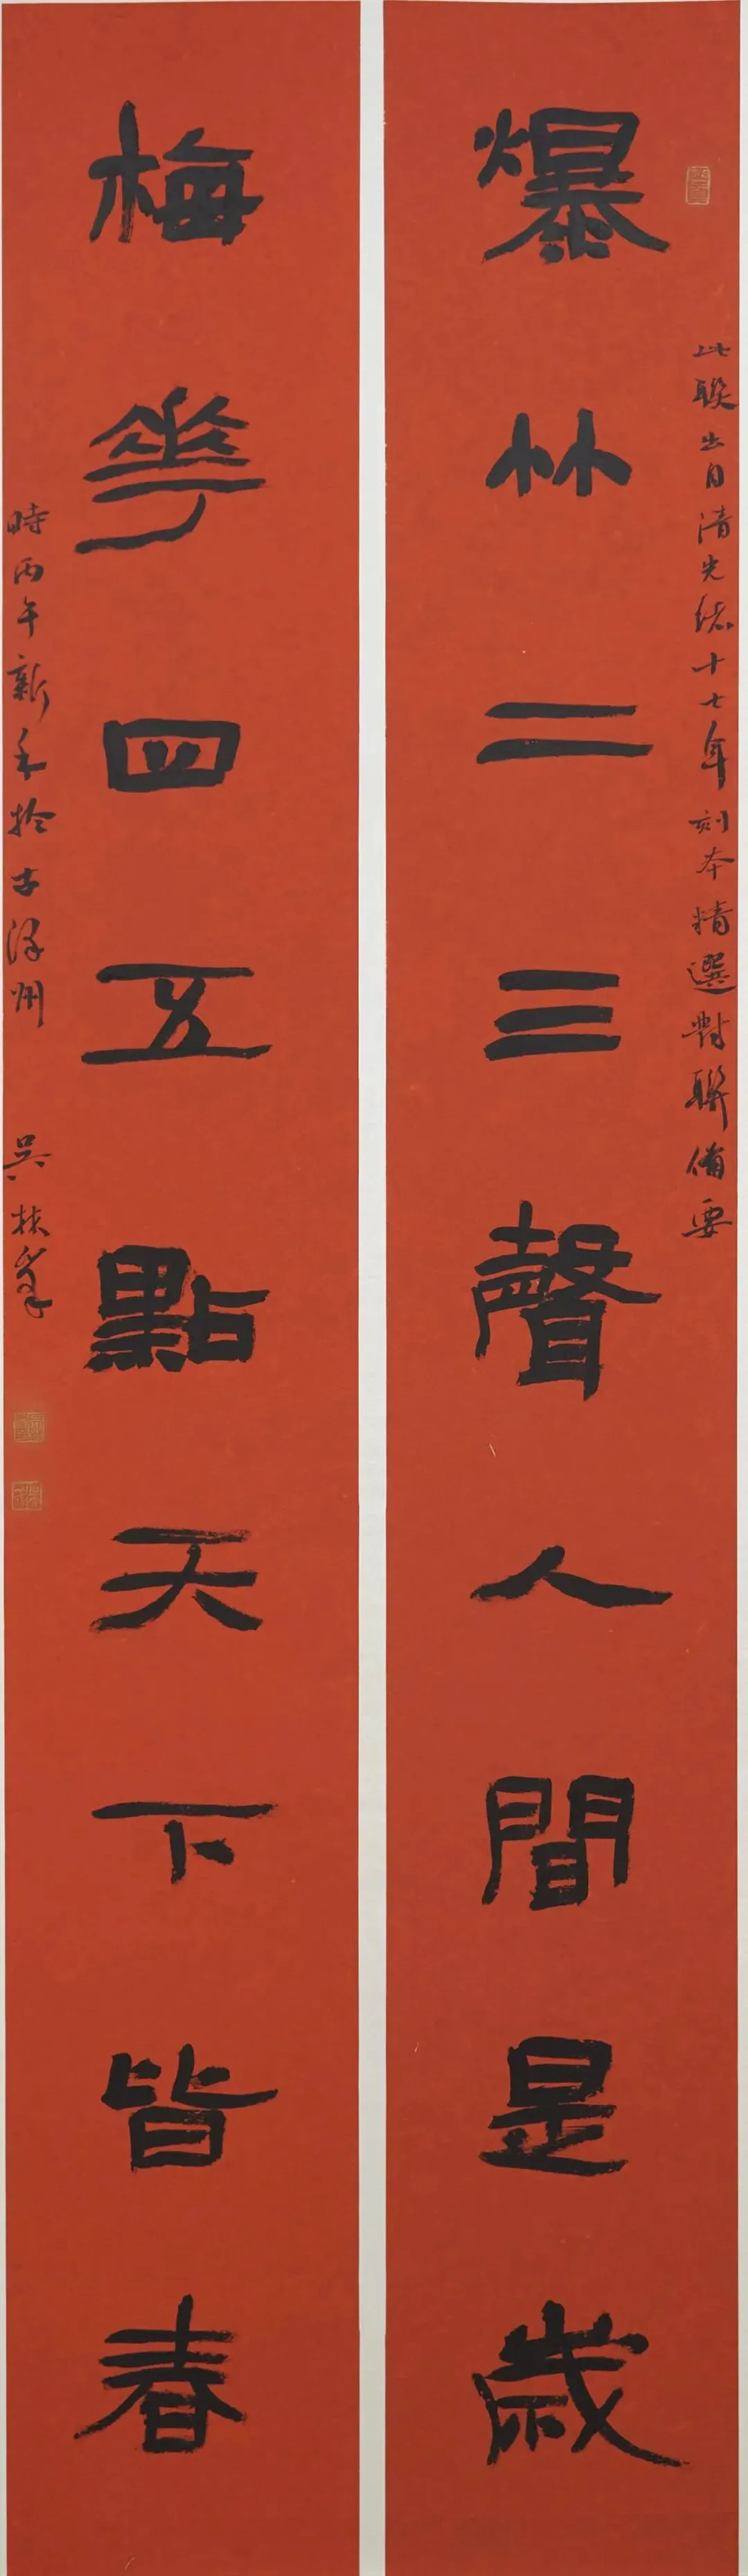 爆竹二三聲人間是歲
此聯出自清光緒十七年刻本精選對聯備要
梅花四五點天下皆春
時丙午新禾於古潭州
吳林峯